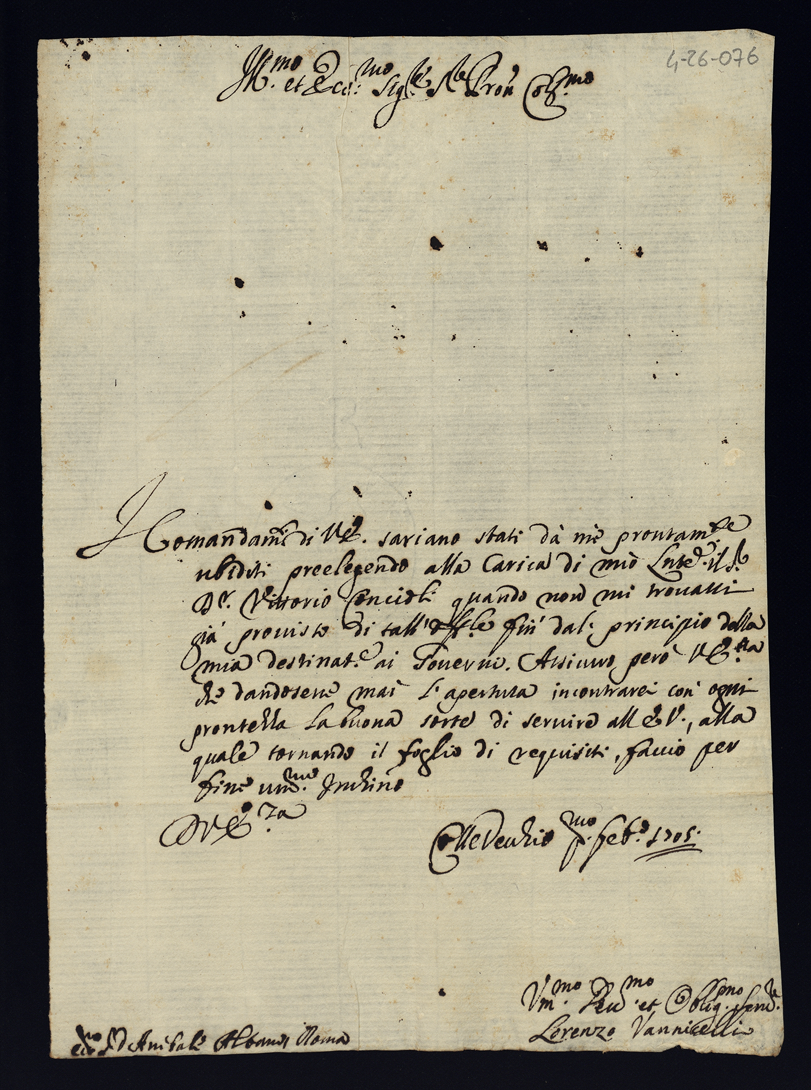 4-26-076
Ill.mo et Ecc.mo Sig.re S.re Pron Col.mo
I Comandam.ti di V.E. sariano stati da me prontam.te
ubiditi preelegendo alla Carica di mio Lnte il S.r
D.r Vittorio Concioli quando non mi trovassi
già provisto di tall' Off.le fin' dal principio della
mia destinat.e ai Governi. Assicuro però V.E.za
che dandosene mai l'apertura incontrarei con ogni
prontezza la buona sorte di servire all E.V., alla
quale tornando il foglio di requisiti, faccio per
fine um.mo Inchino
D.V.E.za
CollеVechio p.mo Feb.o 1705.
Um.mo Deu.mo et Oblig.mo Seru.re
Lorenzo Vannicelli
D Anibale Albani Roma